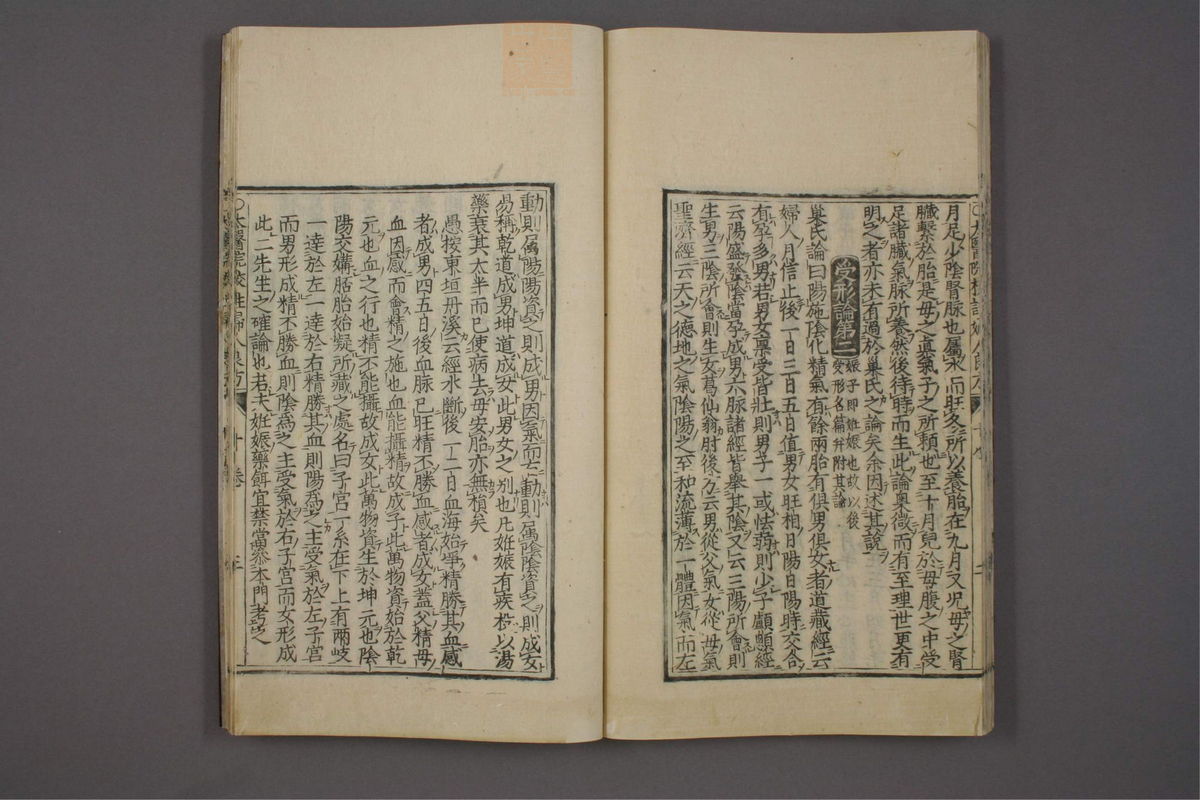 月足少陰腎脉也屬水而旺冬所以養胎在九月又況母之腎
臟繫於胎是母之眞氣子之所賴也至十月兒於母腹之中受
足諸臟氣脉所養然後待時而生此論奧微而有至理世更有
明之者亦未有過於巢氏之論矣余因述其說
受形論第二
娠子即妊娠也故以後
受形名篇并附其論
巢氏論曰陽施陰化精氣有餘兩胎有俱男俱女者道藏經云
婦人月信止後一日三日五日值男女旺相日陽日陽時交合
有孕多男若男女禀受皆壯則男子一或怯弱則少子顱顖經
云陽盛發陰當孕成男六脉諸經皆舉其陰又云三陽所會則
生男三陰所會則生女葛仙翁肘後方云男從父氣女從母氣
聖濟經云天之德地之氣陰陽之至和流薄於一體因氣而左
動則屬陽陽資之則成男因氣而右動則屬陰陰資之則成女
易稱乾道成男坤道成女此男女之別也凡妊娠有疾投以湯
藥衰其太半而已使病去母安胎亦無損矣
愚按東垣丹溪云經水斷後一二日血海始淨精勝其血感
者成男四五日後血脉已旺精不勝血感者成女蓋父精母
血因感而會精之施也血能攝精故成子此萬物資始於乾
元也血之行也精不能攝故成女此萬物資生於坤元也陰
陽交媾胚胎始凝所藏之處名曰子宮一系在下上有兩岐
一達於左一達於右精勝其血則陽爲之主受氣於左子宮
而男形成精不勝血則陰爲之主受氣於右子宮而女形成
此二先生之確論也若夫妊娠藥餌宜禁當叅本門考之